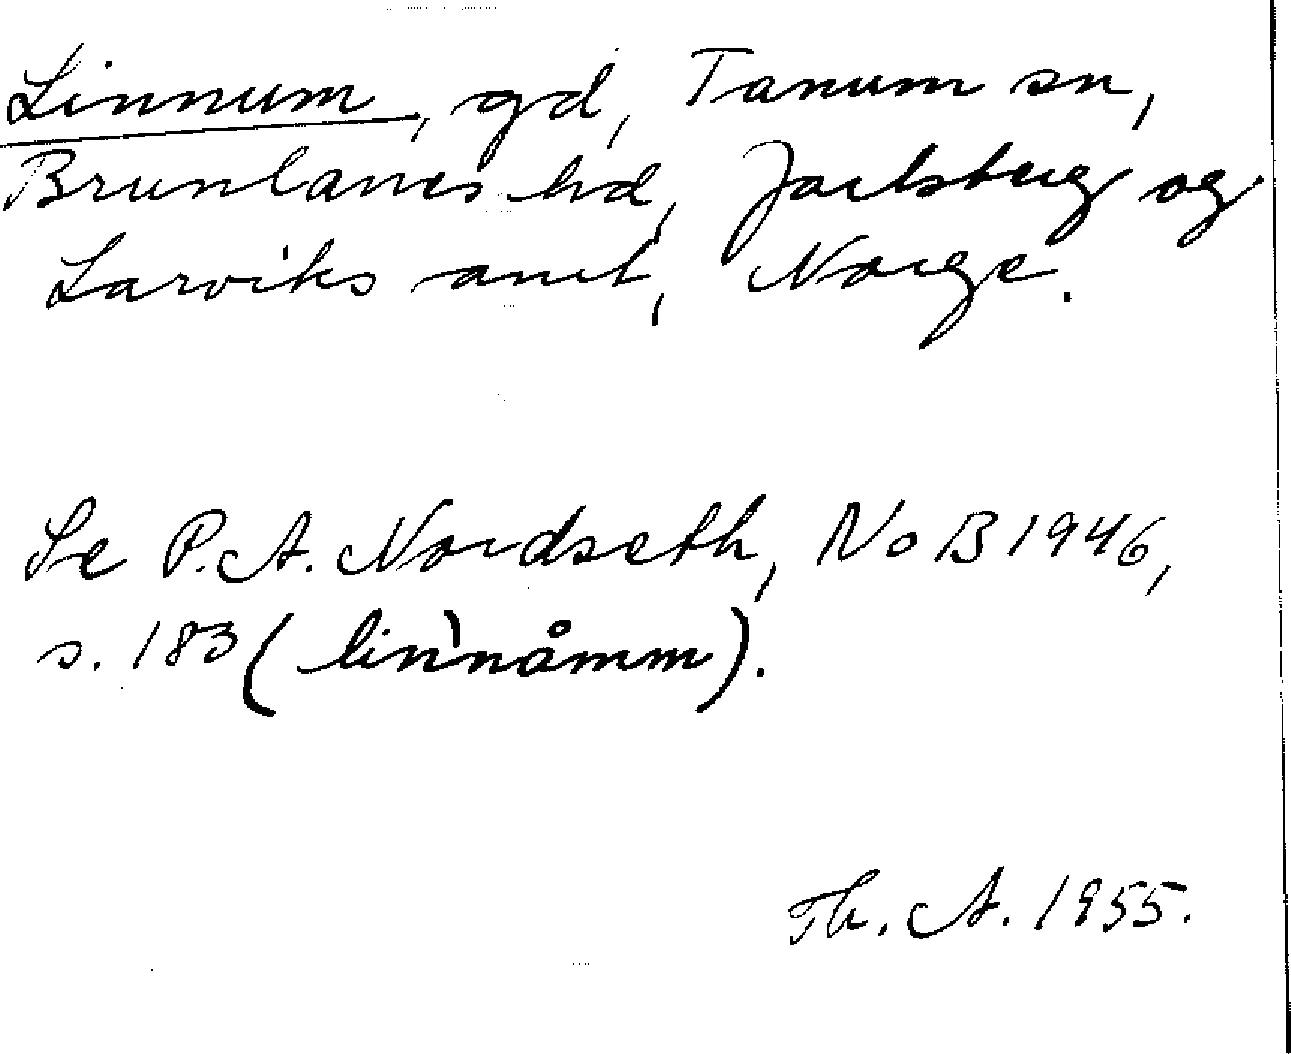 Linnum, gd, Tanum sn,
Brunlanes hd, Jarlsberg og
Larviks amt, Norge.
Se P. A. Nordseth, NoB 1946,
s. 183 (lin`nåmm).
Th. A. 1955.